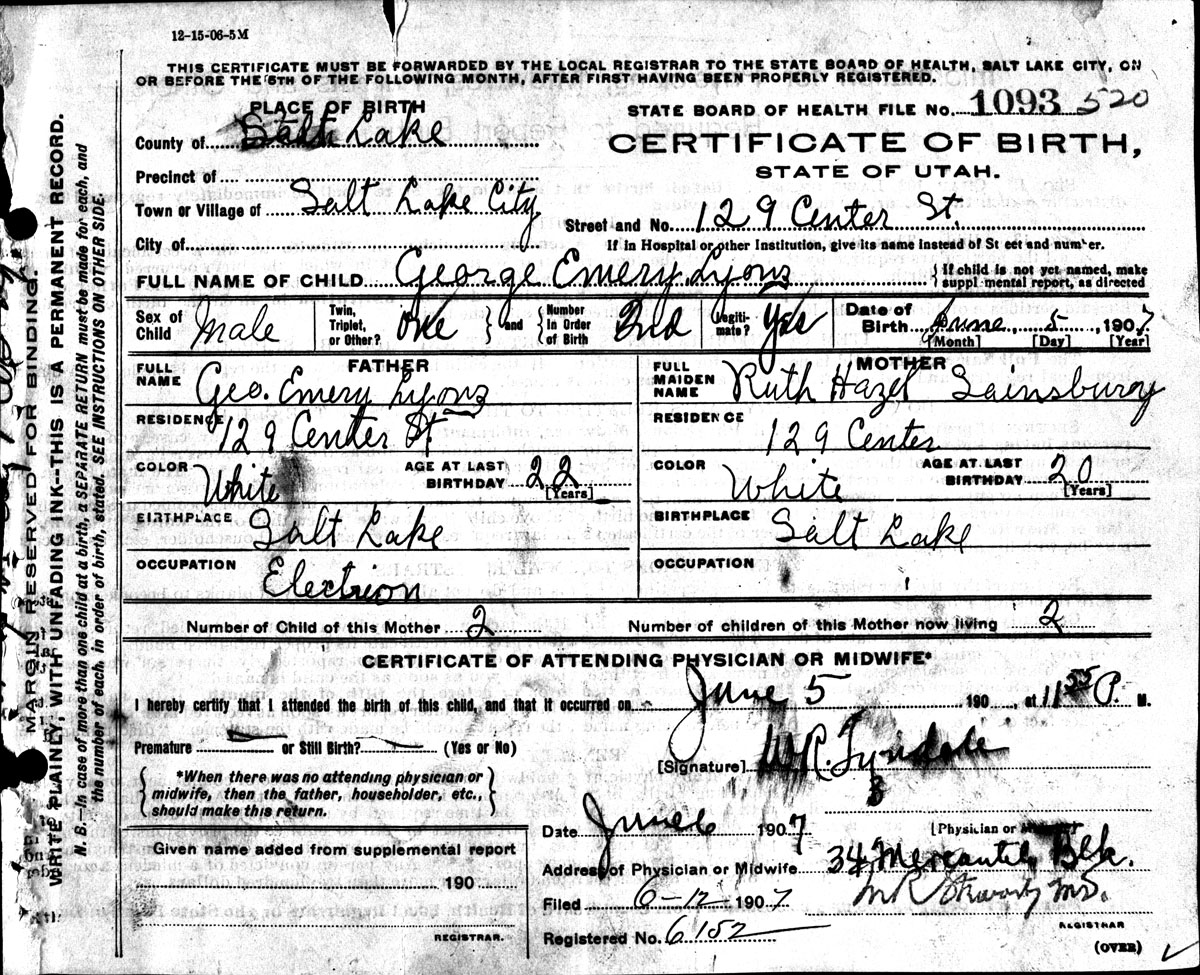 12-15-06-5M
THIS CERTIFICATE MUST BE FORWARDED BY THE LOCAL REGISTRAR TO THE STATE BOARD OF HEALTH, SALT LAKE CITY, ON
OR BEFORE THE 5TH OF THE FOLLOWING MONTH, AFTER FIRST HAVING BEEN PROPERLY REGISTERED.
PLACE OF BIRTH
STATE BOARD OF HEALTH FILE No. 1093 520
County of Salt Lake
CERTIFICATE OF BIRTH,
STATE OF UTAH.
Precinct of
Town or Village of Salt Lake City
Street and No. 129 Center St.
City of
If in Hospital or other Institution, give its name instead of St eet and num er.
FULL NAME OF CHILD George Emery Lyons
{ If child is not yet named, make
suppl mental report, as directed
Sex of Child Male
Twin, Triplet, or Other? one } and { Number In Order of Birth 2nd
Legiti- mate? Yes
Date of Birth June 5, 1907
[Month] [Day] [Year]
FATHER
FULL NAME Geo. Emery Lyons
RESIDENCE 129 Center St
COLOR White AGE AT LAST BIRTHDAY 22 [Years]
BIRTHPLACE Salt Lake
OCCUPATION Electrion
MOTHER
FULL MAIDEN NAME Ruth Hazel Sainsbury
RESIDENCE 129 Center
COLOR White AGE AT LAST BIRTHDAY 20 [Years]
BIRTHPLACE Salt Lake
OCCUPATION
Number of Child of this Mother 2 Number of children of this Mother now living 2
CERTIFICATE OF ATTENDING PHYSICIAN OR MIDWIFE*
I hereby certify that I attended the birth of this child, and that it occurred on June 5 190 , at 11 55 P. M.
Premature or Still Birth? (Yes or No)
[Signature] W.R. Tyndale
{ *When there was no attending physician or
midwife, then the father, householder, etc.,
should make this return. }
Date June 6 1907 [Physician or
Given name added from supplemental report
190
REGISTRAR.
Address of Physician or Midwife 34 Mercantile Blk.
Filed 6-12 1907
REGISTRAR
Registered No. 6152
(OVER)
MARGIN RESERVED FOR BINDING.
WRITE PLAINLY, WITH UNFADING INK--THIS IS A PERMANENT RECORD.
N. B.—In case of more than one child at a birth, a SEPARATE RETURN must be made for each, and
the number of each, in order of birth, stated. SEE INSTRUCTIONS ON OTHER SIDE.